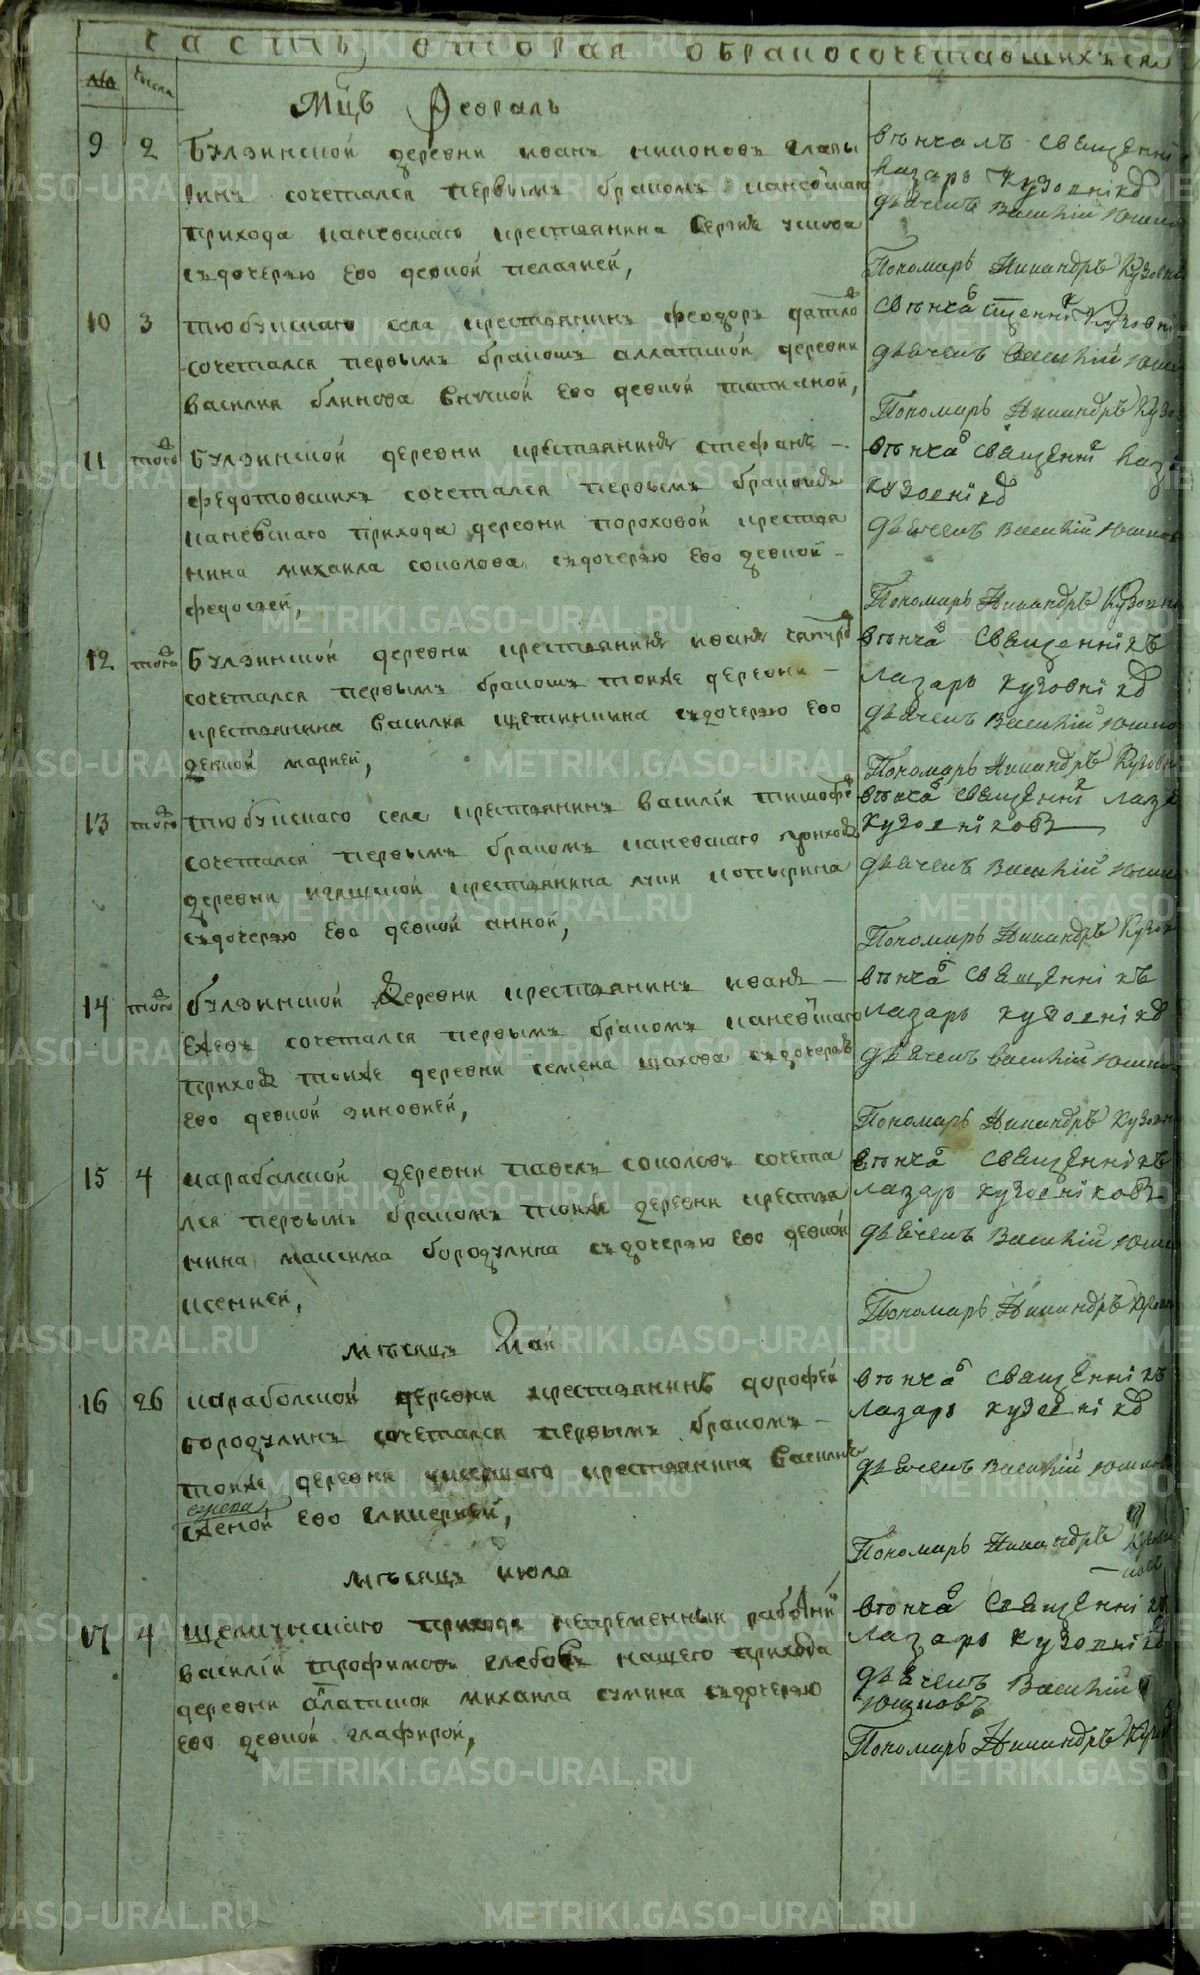 часть вторая обракосочетавшихъся
№ числа
Мцъ Февраль
9 2 Булзинской деревни иванъ никоновъ глазы
ринъ сочетался первымъ бракомъ каневскаго
прихода каневскаго крестьянина
съдочерью его девкой пелагией,
венчалъ священні
лазарь Кузовнікв
дьячекъ Василий Юшко
Пономарь Никандръ Кузовни
10 3 тюбукскаго села крестьянинъ феодоръ
сочетался первымъ бракомъ аллатской деревни
василия блинова внучкой его девкой татианой,
дьячекъ василий Юшк
Пономарь Никандръ Кузо
11 того Булзинской деревни крестьянинъ стефанъ —
федотовскихъ сочетался первымъ бракомъ
каневскаго прихода деревни пороховой крестья
нина михаила соколова съдочерью его девкой —
федосьей,
венча священні Лаза
кузовнікв
дьячекъ Василий Юшков
Пономарь Никандръ Кузовни
12 того Булзинской деревни крестьянинъ иванъ
сочетался первымъ бракомъ тойже деревни —
крестьянина василия щетинкина съдочерью его
девкой марией,
венча священнікъ
лазарь кузовнікв
дьячекъ Василий Юшко
Пономарь Никандръ Кузовни
13 того тюбукскаго села крестьянинъ василій тимофе
сочетался первымъ бракомъ каневскаго прихода
деревни крестьянина луки копырина
съдочерью его девкой анной,
венча священні лаза
кузовніковъ
дьячекъ Василий Юшк
Пономарь Никандръ Кузов
14 того булзинской деревни крестьянинъ иванъ —
ежевъ сочетался первымъ бракомъ каневскаго
прихода тойже деревни семена шахова съдочерью
его девкой зиновией,
венча священнікъ
лазарь кузовнікв
дьячекъ василий Юшко
Пономарь Никандръ Кузовн
15 4 карабалской деревни павелъ соколовъ сочета
лся первымъ бракомъ тойже деревни крестья
нина максима бородулина съдочерью его девкой
ксенией,
венча священнікъ
лазарь кузовніковъ
дьячекъ Василий Юшк
Пономарь Никандръ Кузовн
месяцъ Май
16 26 караболской деревни крестьянинъ дорофей
бородулинъ сочетался первымъ бракомъ —
тойже деревни умершаго крестьянина василия
сженой его гликерией,
венча священнікъ
лазарь кузовнікв
дьячекъ Василий Юшков
Пономарь Никандръ Кузовн
месяцъ июля
17 4 щелкунскаго прихода непременный работній
василій трофимовъ глебовъ нашего прихода
деревни алатской михаила сумина съдочерью
его девкой глафирой,
венча священнікъ
лазарь кузовнікв
дьячекъ Василий
Юшковъ
Пономарь Никандръ Кузов
METRIKI.GASO-URAL.RU